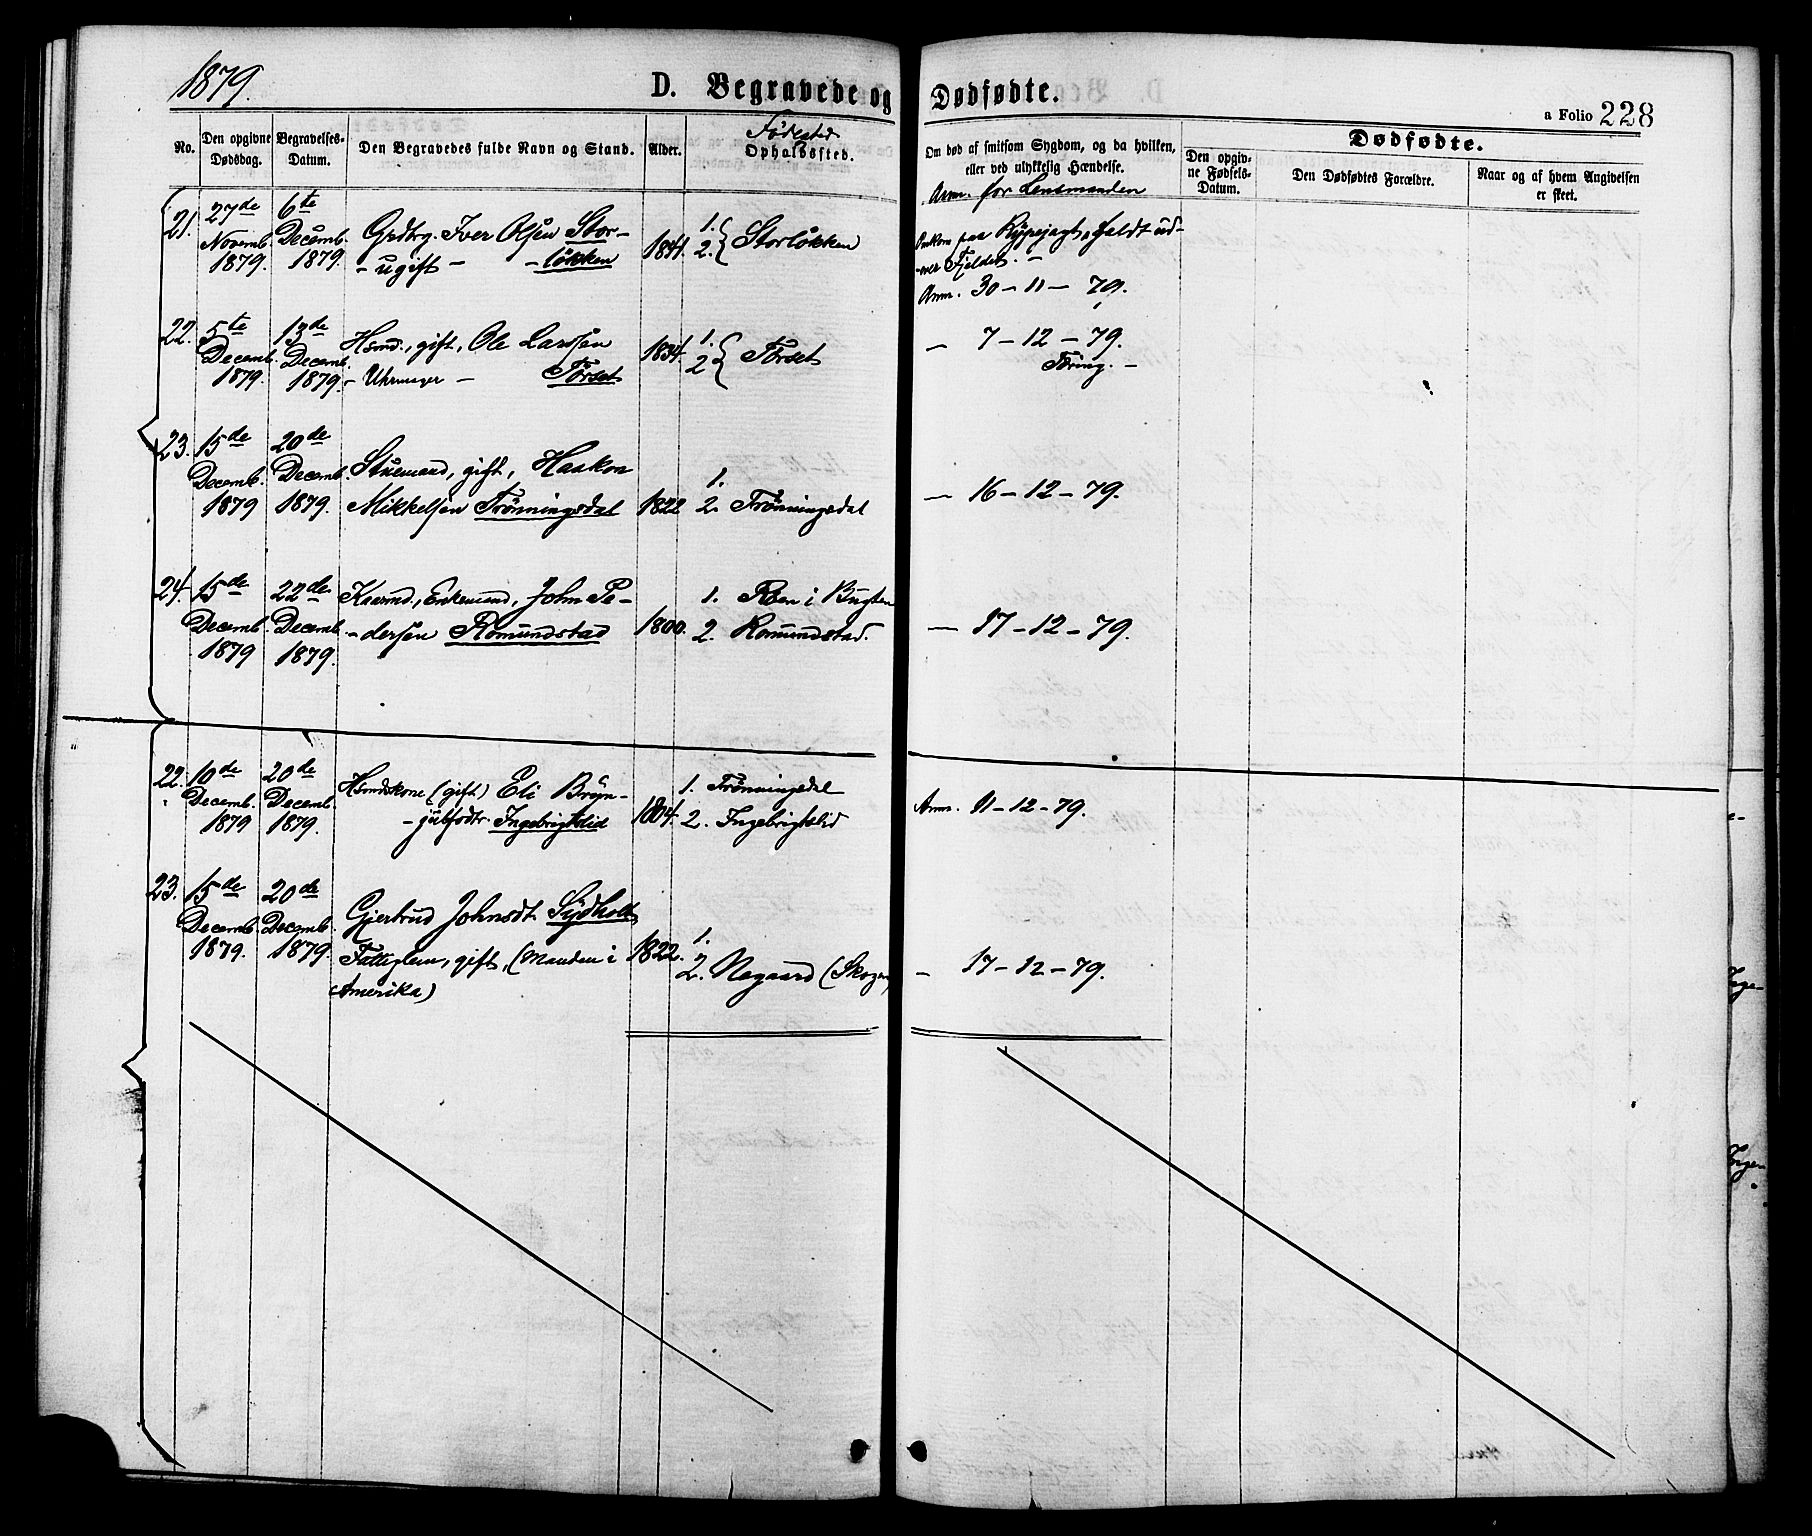 1879.
D. Begravede og Dødfødte.
a Folio 228
No.
Den opgivne Dødsdag.
Begravelses-Datum.
Den Begravedes fulde Navn og Stand.
Alder.
Fødested
Opholdssted.
Om død af smitsom Sygdom, og da hvilken,
eller ved ulykkelig Hændelse.
Anm. for Lensmanden
Dødfødte.
Den opgiv-
ne Fødsels-
Datum.
Den Dødfødtes Forældre.
Naar og af hvem Angivelsen
er skeet.
21. 27de 6te
Novemb. Decemb. Grdbrg. Iver Olsen Stor- 1841. 1. 2. { Storløkken
1879. 1879. - ugift - - løkken
Omkom paa Rypejagt, faldt ud-
over Fjeldet. -
Anm. 30 - 11 - 79.
22. 5te 13de Hsmd., gift, Ole Larssen 1834. 1. 2 { Tørset
Decemb. Decemb.
1879. 1879. - Uhrmager - Tørset
- 7 - 12 - 79.
Tæring. -
23. 15de 20de
Decemb. Decemb. Stuemand, gift, Haakon 1.
1879 1879. Mikkelsen Trønningsdal 1822 2. Trønningsdal
- 16 - 12 - 79.
24. 15de 22de Kaarmd., Enkemand, John Pe- 1. Røen i Bugten
Decemb. Decemb. -dersen Romundstad 1800. 2. Romundstad.
1879 1879.
- 17 - 12 - 79.
22. 10de 20de Hsmdskone (gift) Eli Bryn- 1. Trønningsdal
Decemb. Decemb. -julfsdtr. Ingebrigtslid 1804. 2. Ingebrigtslid
1879 1879.
Anm. 11 - 12 - 79.
23. 15de 20de
Decemb. Decemb. Gjertrud Johnsdt. Sydhalt
1879. 1879. Fattiglem, gift, (Manden i 1822. 1.
Amerika) 2. Negaard (Skogen)
- 17 - 12 - 79.